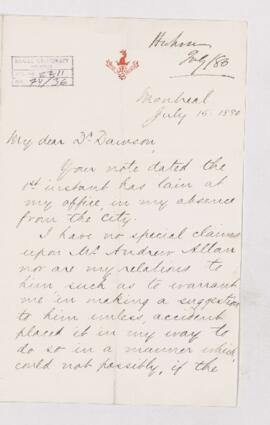 July/80
Montreal
July 15. 1880
My dear Dr Dawson,
Your note dated the
1st instant has lain at
my office in my absence
from the city.
I have no special claims
upon Mr. Andrew Allan
nor are my relations to
him, such as to warrant
me in making a suggestion
to him unless, accident
placed it in my way to
do so in a manner which,
could not possibly, if the